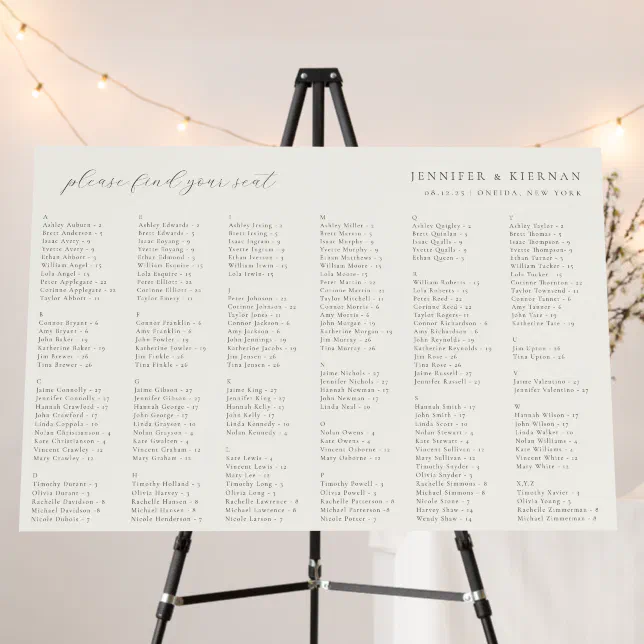 please find your seat
JENNIFER & KIERNAN
08.12.25 | ONEIDA, NEW YORK
A
Ashley Auburn - 2
Brett Anderson - 5
Isaac Avery - 9
Yvette Avery - 9
Ethan Abbott - 3
William Angel - 15
Lola Angel - 15
Peter Applegate - 22
Corinne Applegate - 22
Taylor Abbott - 11
B
Connor Bryant - 6
Amy Bryant - 6
John Baker - 19
Katherine Baker - 19
Jim Brewer - 26
Tina Brewer - 26
C
Jaime Connolly - 27
Jennifer Connolly - 27
Hannah Crawford - 17
John Crawford - 17
Linda Coppola - 10
Nolan Christianson - 4
Kate Christianson - 4
Vincent Crawley - 12
Mary Crawley - 12
D
Timothy Durant - 3
Olivia Durant - 3
Rachelle Davidson - 8
Michael Davidson - 8
Nicole Dubois - 7
E
Ashley Edwards - 2
Brett Edwards - 5
Isaac Eoyang - 9
Yvette Eoyang - 9
Ethan Edmond - 3
William Esquire - 15
Lola Esquire - 15
Peter Elliott - 22
Corinne Elliott - 22
Taylor Emery - 11
F
Connor Franklin - 6
Amy Franklin - 6
John Fowler - 19
Katherine Fowler - 19
Jim Finkle - 26
Tina Finkle - 26
G
Jaime Gibson - 27
Jennifer Gibson - 27
Hannah George - 17
John George - 17
Linda Grayson - 10
Nolan Grayson - 4
Kate Gwalten - 4
Vincent Graham - 12
Mary Graham - 12
H
Timothy Holland - 3
Olivia Harvey - 3
Rachelle Hansen - 8
Michael Hansen - 8
Nicole Henderson - 7
I
Ashley Irving - 2
Brett Irving - 5
Isaac Ingram - 9
Yvette Ingram - 9
Ethan Iverson - 3
William Irwin - 15
Lola Irwin - 15
J
Peter Johnson - 22
Corinne Johnson - 22
Taylor Jones - 11
Connor Jackson - 6
Amy Jackson - 6
John Jennings - 19
Katherine Jacobs - 19
Jim Jensen - 26
Tina Jensen - 26
K
Jaime King - 27
Jennifer King - 27
Hannah Kelly - 17
John Kelly - 17
Linda Kennedy - 10
Nolan Kennedy - 4
L
Kate Lewis - 4
Vincent Lewis - 12
Mary Lee - 12
Timothy Long - 3
Olivia Long - 3
Rachelle Lawrence - 8
Michael Lawrence - 8
Nicole Larson - 7
M
Ashley Miller - 2
Brett Mercin - 5
Isaac Murphy - 9
Yvette Murphy - 9
Ethan Matthews - 3
William Moore - 15
Lola Moore - 15
Peter Martin - 22
Corinne Martin - 22
Taylor Mitchell - 11
Connor Morris - 6
Amy Morris - 6
John Morgan - 19
Katherine Morgan - 19
Jim Murray - 26
Tina Murray - 26
N
Jaime Nichols - 27
Jennifer Nichols - 27
Hannah Newman - 17
John Newman - 17
Linda Neal - 10
O
Nolan Owens - 4
Kate Owens - 4
Vincent Osborne - 12
Mary Osborne - 12
P
Timothy Powell - 3
Olivia Powell - 3
Rachelle Patterson - 8
Michael Patterson - 8
Nicole Potter - 7
Q
Ashley Quigley - 2
Brett Quinlan - 5
Isaac Qualls - 9
Yvette Qualls - 9
Ethan Queen - 3
R
William Roberts - 15
Lola Roberts - 15
Peter Reed - 22
Corinne Reed - 22
Taylor Rogers - 11
Connor Richardson - 6
Amy Richardson - 6
John Reynolds - 19
Katherine Reynolds - 19
Jim Rose - 26
Tina Rose - 26
Jaime Russell - 27
Jennifer Russell - 27
S
Hannah Smith - 17
John Smith - 17
Linda Scott - 10
Nolan Stewart - 4
Kate Stewart - 4
Vincent Sullivan - 12
Mary Sullivan - 12
Timothy Snyder - 3
Olivia Snyder - 3
Rachelle Simmons - 8
Michael Simmons - 8
Nicole Stone - 7
Harvey Shaw - 14
Wendy Shaw - 14
T
Ashley Taylor - 2
Brett Thomas - 5
Isaac Thompson - 9
Yvette Thompson - 9
Ethan Turner - 3
William Tucker - 15
Lola Tucker - 15
Corinne Thornton - 22
Taylor Townsend - 11
Connor Tanner - 6
Amy Tanner - 6
John Tate - 19
Katherine Tate - 19
U
Jim Upton - 26
Tina Upton - 26
V
Jaime Valentino - 27
Jennifer Valentino - 27
W
Hannah Wilson - 17
John Wilson - 17
Linda Walker - 10
Nolan Williams - 4
Kate Williams - 4
Vincent White - 12
Mary White - 12
X,Y,Z
Timothy Xavier - 3
Olivia Young - 3
Rachelle Zimmerman - 8
Michael Zimmerman - 8